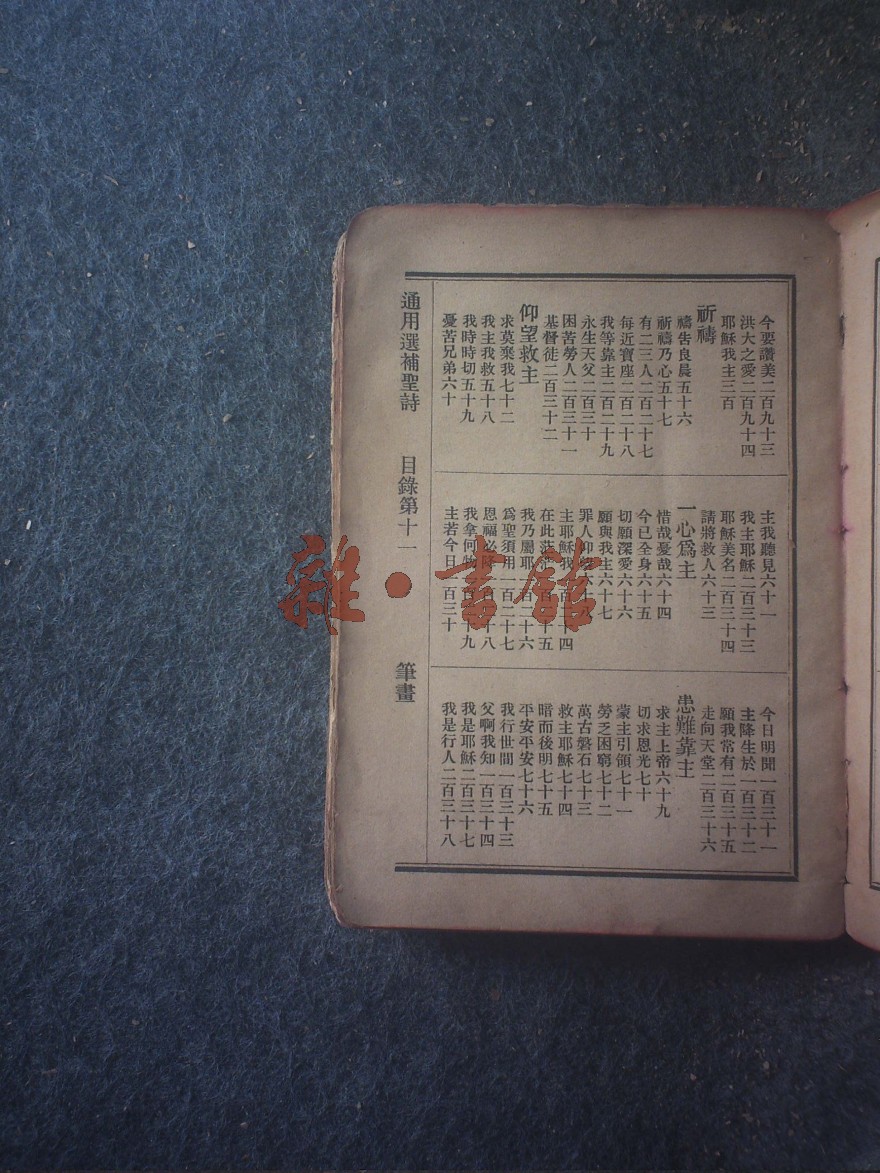 今要讚美二百九十三
洪大之愛二百九十四
耶穌我主三百
祈禱
禱告良晨五十六
祈禱乃心五十七
有二三人二百二十七
每近寶座二百二十八
我等靠主二百二十九
永生天父二百三十
困苦勞人二百三十一
基督徒二百三十二
仰望救主
求莫棄我七十二
我主我救五十八
我時時切五十九
憂苦兄弟六十
主我聽見六十一
我主耶穌二百三十三
耶穌美名二百三十四
請將救人六十三
一心爲主
惜哉憂哉六十四
今已全身六十五
切願深愛六十六
願與我主六十七
罪人仰
主耶穌我
在此茫
我乃屬耶 百二十六
爲聖須用一百二十七
恩福必
我拿何物
主若今日 百三十
今日明聞一百三十一
主降生於一百三十二
願我常有二百三十五
走向天堂二百三十六
患難靠主
求主上帝六十九
切求恩光七十
蒙主引領七十一
勞乏困窮七十二
萬古磐石七十三
救主耶穌七十四
暗而後明七十五
平安平安七十六
我行世間一百三十三
父啊我知一百三十四
我是耶穌二百三十七
我是行人二百三十八
通用選補聖詩 目錄第十一 筆畫
雜·書館